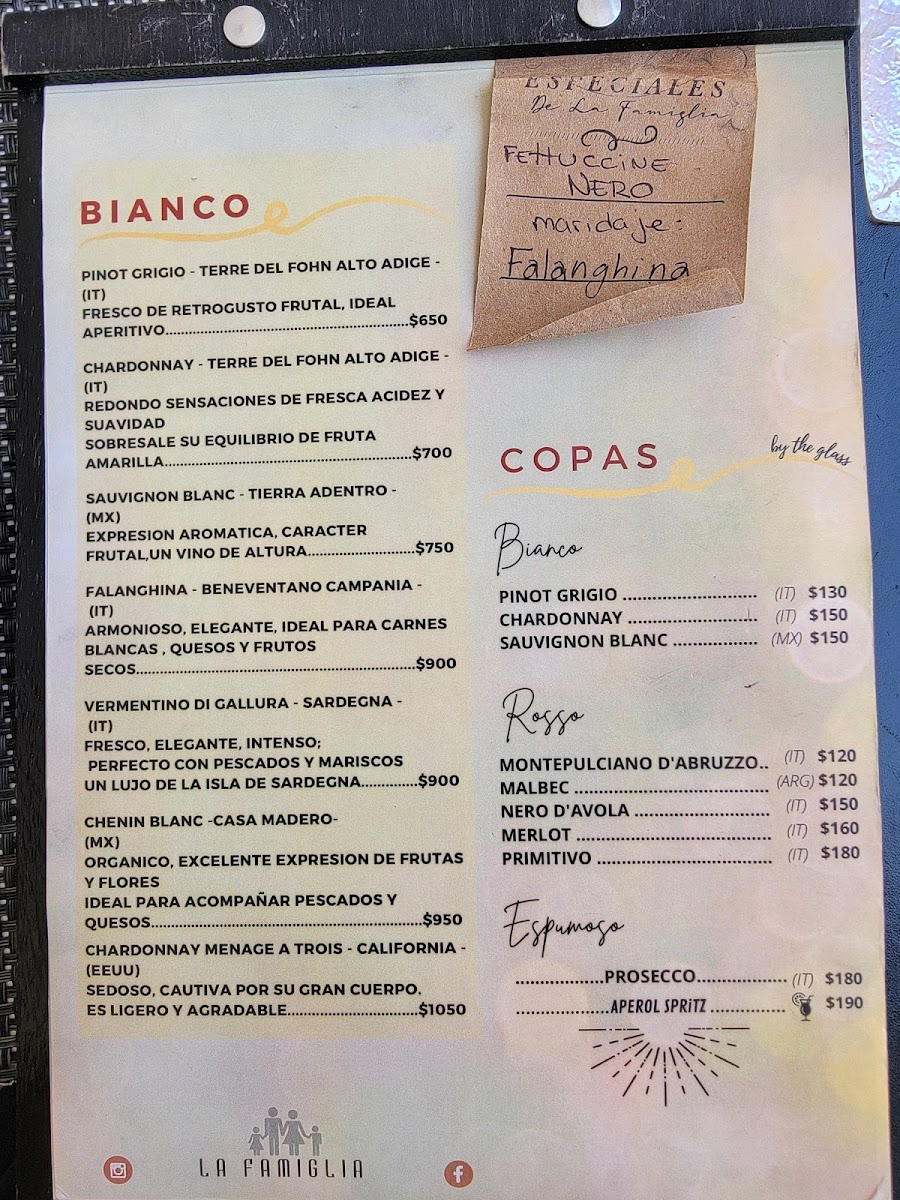 ESPECIALES
De La Famiglia
FETTUCCINE
NERO
maridaje:
Falanghina
BIANCO
PINOT GRIGIO - TERRE DEL FOHN ALTO ADIGE -
(IT)
FRESCO DE RETROGUSTO FRUTAL, IDEAL
APERITIVO....................................................$650
CHARDONNAY - TERRE DEL FOHN ALTO ADIGE -
(IT)
REDONDO SENSACIONES DE FRESCA ACIDEZ Y
SUAVIDAD
SOBRESALE SU EQUILIBRIO DE FRUTA
AMARILLA.....................................................$700
SAUVIGNON BLANC - TIERRA ADENTRO -
(MX)
EXPRESION AROMATICA, CARACTER
FRUTAL,UN VINO DE ALTURA.......................$750
FALANGHINA - BENEVENTANO CAMPANIA -
(IT)
ARMONIOSO, ELEGANTE, IDEAL PARA CARNES
BLANCAS , QUESOS Y FRUTOS
SECOS............................................................$900
VERMENTINO DI GALLURA - SARDEGNA -
(IT)
FRESCO, ELEGANTE, INTENSO;
PERFECTO CON PESCADOS Y MARISCOS
UN LUJO DE LA ISLA DE SARDEGNA............$900
CHENIN BLANC -CASA MADERO-
(MX)
ORGANICO, EXCELENTE EXPRESION DE FRUTAS
Y FLORES
IDEAL PARA ACOMPAÑAR PESCADOS Y
QUESOS..........................................................$950
CHARDONNAY MENAGE A TROIS - CALIFORNIA -
(EEUU)
SEDOSO, CAUTIVA POR SU GRAN CUERPO.
ES LIGERO Y AGRADABLE............................$1050
COPAS
by the glass
Bianco
PINOT GRIGIO ............................ (IT) $130
CHARDONNAY ........................... (IT) $150
SAUVIGNON BLANC ................. (MX) $150
Rosso
MONTEPULCIANO D'ABRUZZO.. (IT) $120
MALBEC ........................................ (ARG) $120
NERO D'AVOLA ............................ (IT) $150
MERLOT ........................................ (IT) $160
PRIMITIVO .................................... (IT) $180
Espumoso
..................PROSECCO.................. (IT) $180
...................APEROL SPRiTZ ............... $190
LA FAMIGLIA